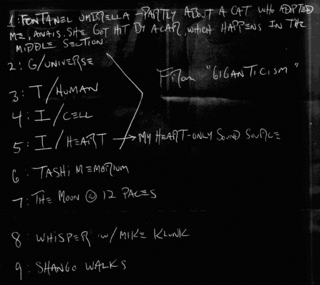 1: FONTANEL UMBRELLA - PARTLY ABOUT A CAT WHO ADOPTED
ME, ANAIS. SHE GOT HIT BY A CAR, WHICH HAPPENS IN THE
MIDDLE SECTION
2: G/UNIVERSE
3: T/HUMAN
4: I/CELL
5: I/HEART → MY HEART-ONLY SOUND SOURCE
FROM "GIGANTICISM"
6: TASHI MEMORIUM
7: THE MOON @ 12 PACES
8: WHISPER W/ MIKE KLUNK
9: SHANGO WALKS